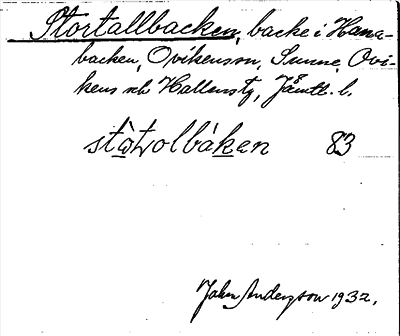 Stortallbacken, backe i Hara-
backen, Ovikenssn, Sunne, Ovi-
kens och Hallens tg, Jämtl. l.
stòtvolbáken 83
John Anderzson 1932.